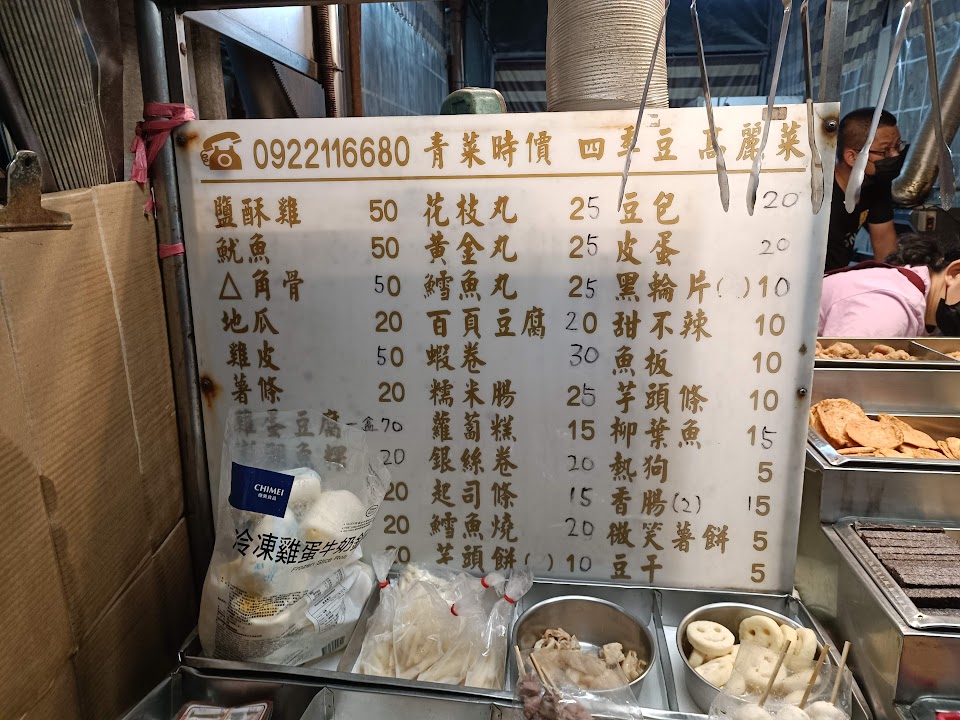 0922116680 青菜時價 四季豆 高麗菜
鹽酥雞 50
魷魚 50
△角骨 50
地瓜 20
雞皮 50
薯條 20
雞蛋豆腐一盒70
20
20
20
花枝丸 25
黃金丸 25
鱈魚丸 25
百頁豆腐 20
蝦卷 30
糯米腸 25
蘿蔔糕 15
銀絲卷 20
起司條 15
鱈魚燒 20
芋頭餅( ) 10
豆包 20
皮蛋 20
黑輪片( ) 10
甜不辣 10
魚板 10
芋頭條 10
柳葉魚 15
熱狗 5
香腸(2) 15
微笑薯餅 5
豆干 5
CHIMEI
冷凍雞蛋牛奶